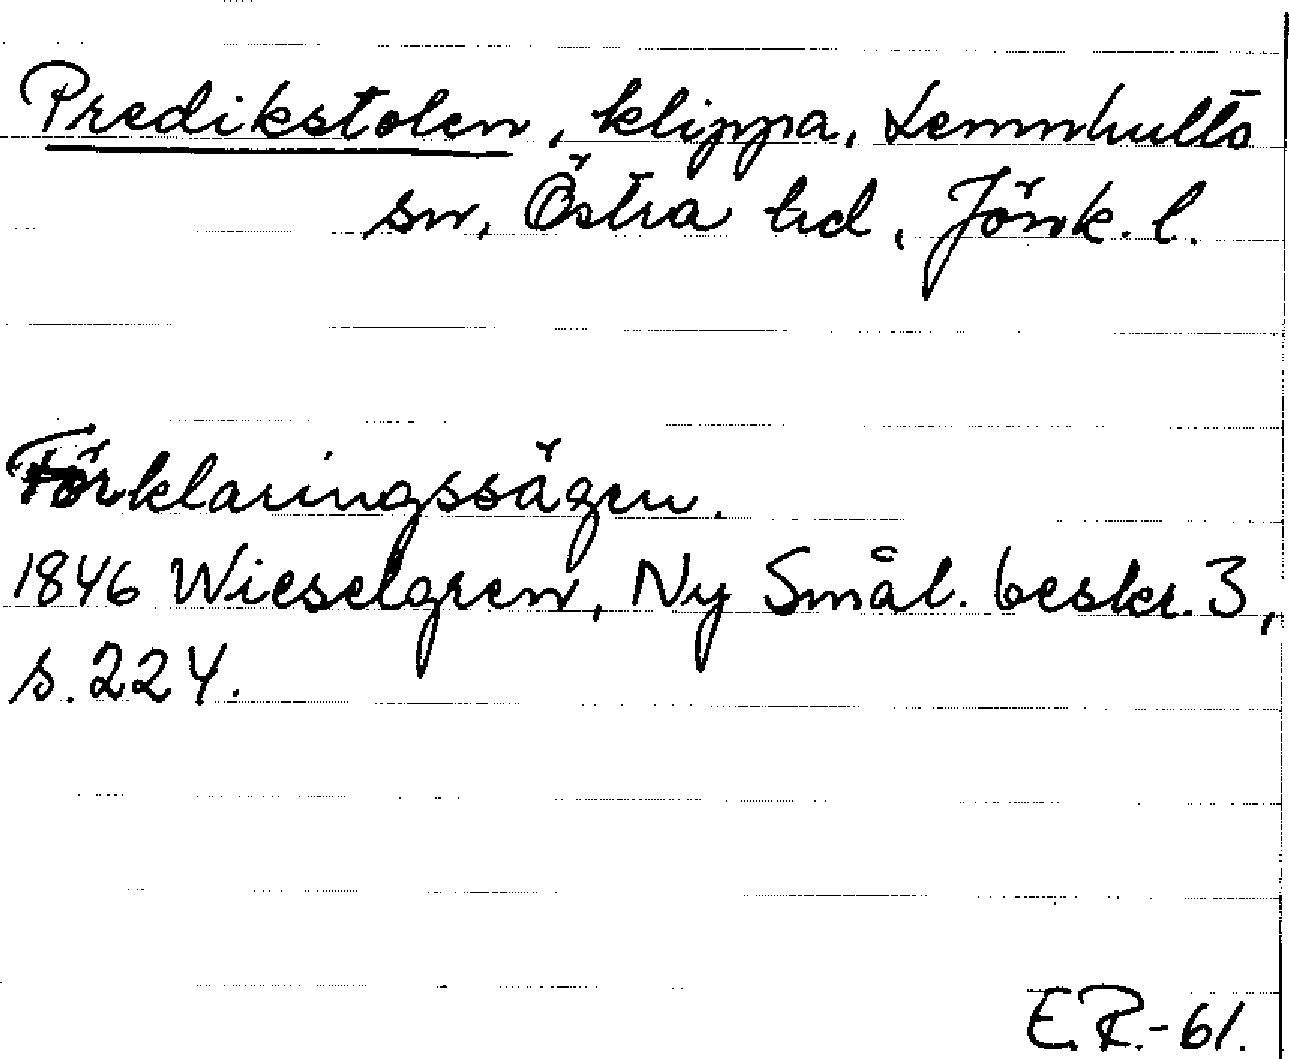 Predikstolen, klippa, Lemnhults
sn, Östra hd, Jönk. l.
Förklaringssägen.
1846 Wieselgren, Ny Smål. beskr. 3,
s. 224.
E.R.-61.